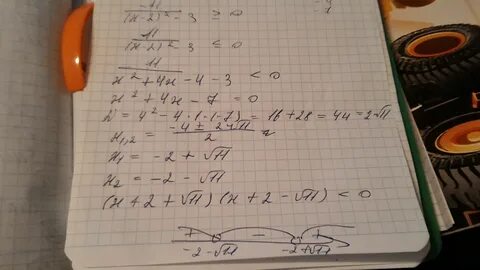 -11/((x-2)² - 3) ≥ 0
11/((x-2)² - 3) ≤ 0
11/(x² + 4x - 4 - 3) < 0
x² + 4x - 7 = 0
D = 4² - 4 · 1 · (-7) = 16 + 28 = 44 = 2√11
x₁,₂ = (-4 ± 2√11)/2
x₁ = -2 + √11
x₂ = -2 - √11
(x + 2 + √11)(x + 2 - √11) < 0
+ - +
-2-√11 -2+√11